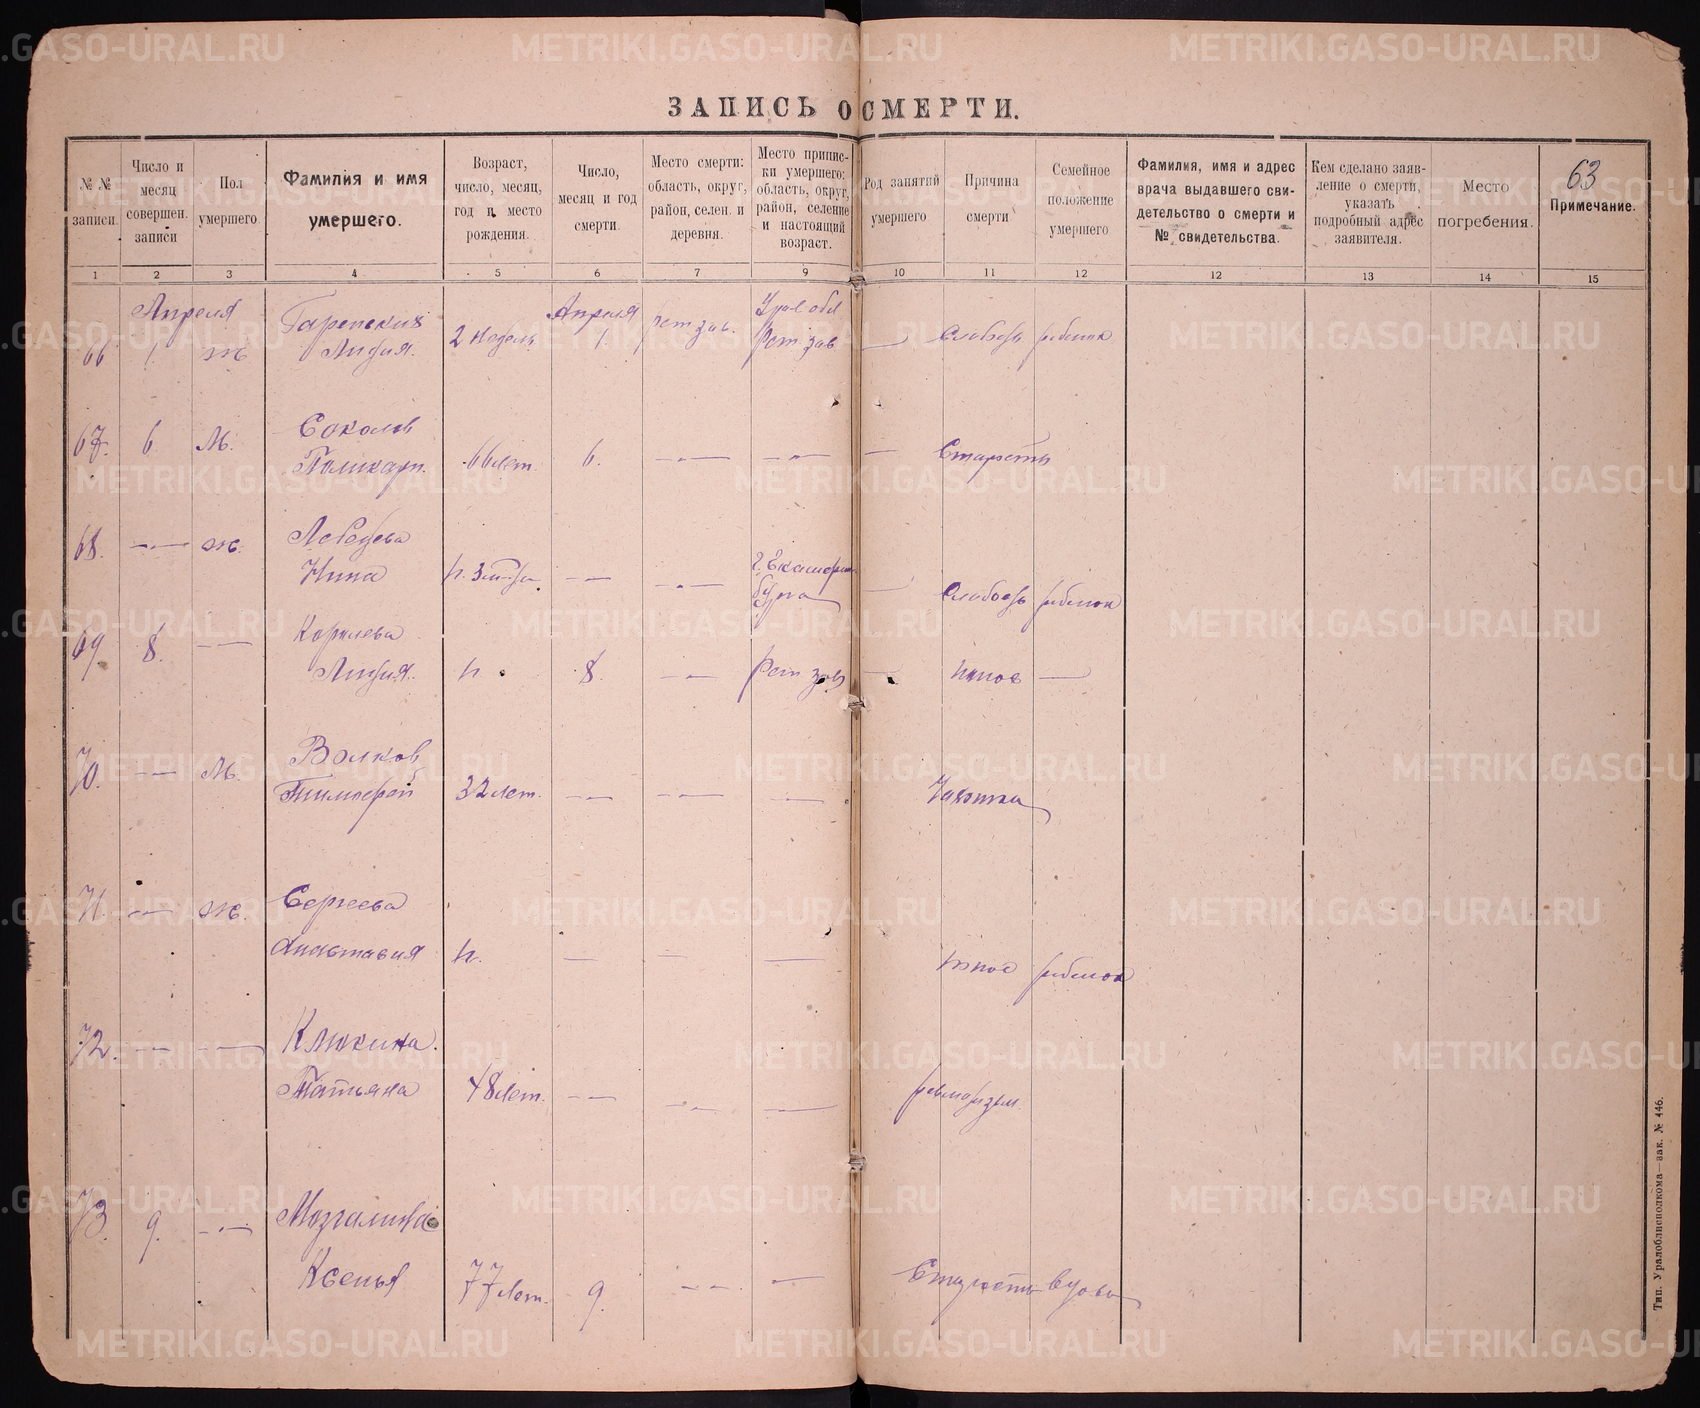 ЗАПИСЬ О СМЕРТИ.
63
№ № записи.
Число и месяц совершен. записи
Пол умершего.
Фамилия и имя умершего.
Возраст, число, месяц, год и место рождения.
Число, месяц и год смерти.
Место смерти: область, округ, район, селен. и деревня.
Место приписки умершего: область, округ, район, селение и настоящий возраст.
Род занятий умершего
Причина смерти
Семейное положение умершего
Фамилия, имя и адрес врача выдавшего свидетельство о смерти и № свидетельства.
Кем сделано заявление о смерти, указать подробный адрес заявителя.
Место погребения.
Примечание.
1 2 3 4 5 6 7 9 10 11 12 12 13 14 15
Апреля Апреля
66 1 ж Лидия. 2 недели 1.
67. 6 м. Соколов
66 лет. 6. Старость
68. ж. Лебедева
Нина
69. 8. Королева
Лидия. 8. понос
70. м. Волков
Тимофей 32 лет. Чахотка
71. ж. Сергеева
Анастасия понос ребенок
72. Клюкина.
Татьяна 48 лет. ревматизм
73. 9. Мозгалина
Ксенья 77 лет. 9. Старость вдова
Тип. Уралоблисполкома—зак. № 446.
METRIKI.GASO-URAL.RU